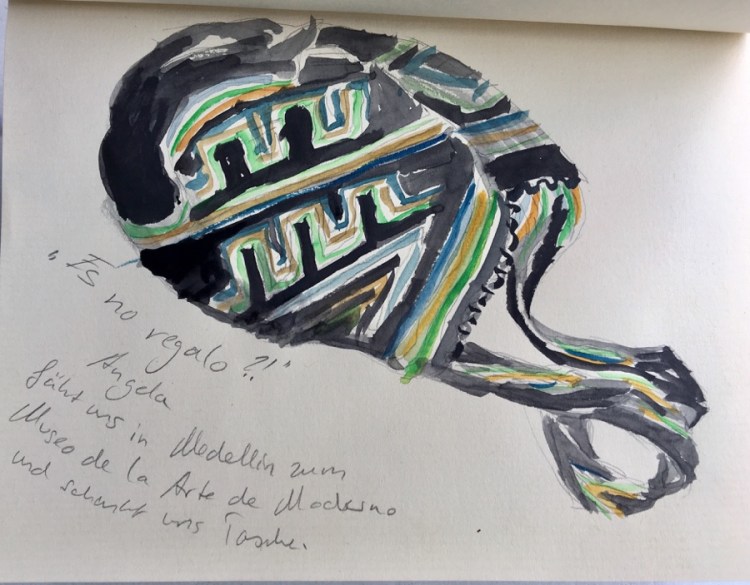 "Is no regalo ?!"
Angela
fährt uns in Medellin zum
Museo de la Arte de Moderno
und schenkt uns Tasche.